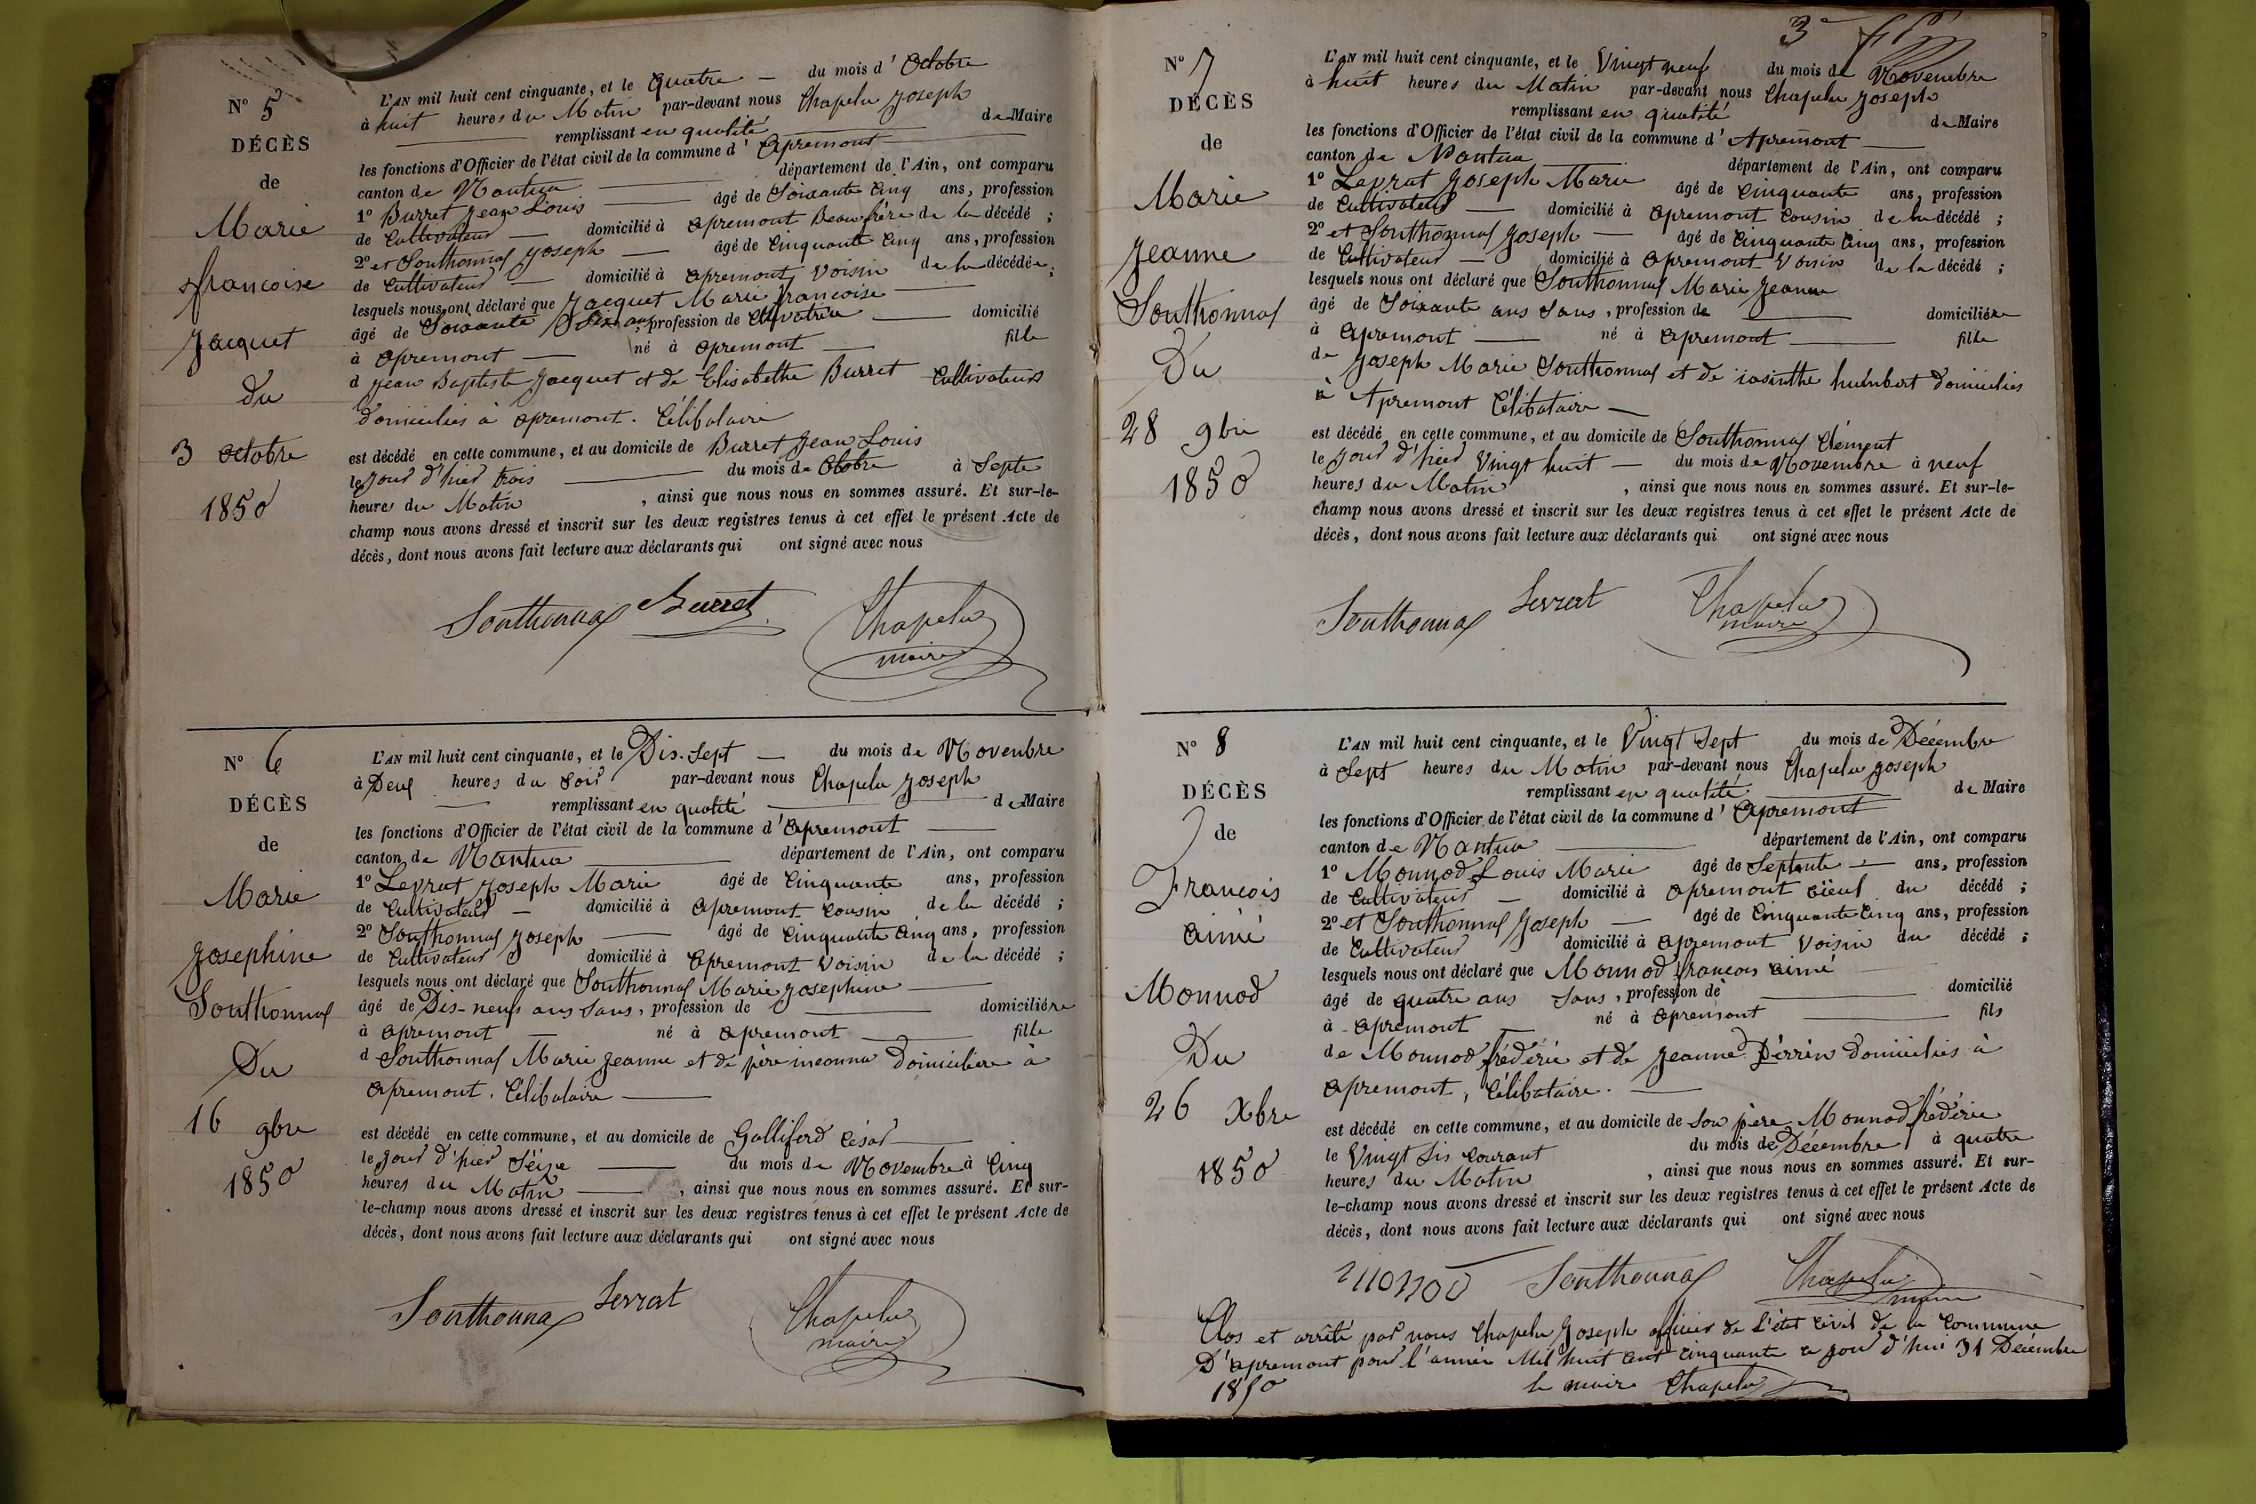 N° 5
DÉCÈS
de
Marie
francoise
Jacquet
du
3 octobre
1850
L'AN mil huit cent cinquante, et le quatre — du mois d' Octobre
à huit heures du Matin par-devant nous Chapelu Joseph
remplissant en qualité de Maire
les fonctions d'Officier de l'état civil de la commune d' Apremont
canton de Nantua département de l'Ain, ont comparu
1° Burret Jean Louis âgé de Soixante Cinq ans, profession
de Cultivateur — domicilié à apremont Beau frère de la décédé ;
2° et Southonnax Joseph — âgé de Cinquante Cinq ans, profession
de Cultivateur — domicilié à apremont voisin de la décédée ;
lesquels nous ont déclaré que Jacquet Marie francoise
âgé de Soixante Six ans, profession de Cltivatrice domicilié
à apremont — né à apremont — fille
d Jean Baptiste Jacquet et de Elisabethe Burret Cultivateurs
domiciliés à apremont. Célibataire
est décédé en cette commune, et au domicile de Burret Jean Louis
le jour d'hier trois du mois de Obobre à Septe
heures du Matin , ainsi que nous nous en sommes assuré. Et sur-le-
champ nous avons dressé et inscrit sur les deux registres tenus à cet effet le présent Acte de
décès, dont nous avons fait lecture aux déclarants qui ont signé avec nous
Southonnax Burret Chapelu
maire
N° 6
DÉCÈS
de
Marie
Josephine
Southonnax
Du
16 9bre
1850
L'AN mil huit cent cinquante, et le Dix-Sept — du mois de Novenbre
à Deux heures du Soir par-devant nous Chapelu Joseph
remplissant en qualité de Maire
les fonctions d'Officier de l'état civil de la commune d' apremont
canton de Nantua département de l'Ain, ont comparu
1° Levrat Joseph Marie âgé de Cinquante ans, profession
de Cultivateur — domicilié à apremont Cousin de la décédé ;
2° Southonnax Joseph — âgé de Cinquante Cinq ans, profession
de Cultivateur domicilié à apremont Voisin de la décédé ;
lesquels nous ont déclaré que Southonnax Marie Josephine
âgé de Dis-neufs ans Sans, profession de domiciliére
à apremont — né à apremont — fille
d Southonnax Marie Jeanne et de père inconnu domiciliere à
apremont. Célibataire
est décédé en cette commune, et au domicile de Golliferd César
le jour d'hier Séize — du mois de Novembre à Cinq
heures du Matin — , ainsi que nous nous en sommes assuré. Et sur-
le-champ nous avons dressé et inscrit sur les deux registres tenus à cet effet le présent Acte de
décès, dont nous avons fait lecture aux déclarants qui ont signé avec nous
Southonnax Levrat Chapelu
maire
3e
N° 7
DÉCÈS
de
Marie
Jeanne
Southonnax
Du
28 9bre
1850
L'AN mil huit cent cinquante, et le Vingt neuf du mois de Novembre
à huit heures du Matin par-devant nous Chapelu Joseph
remplissant en qualité de Maire
les fonctions d'Officier de l'état civil de la commune d' Apremont
canton de Nantua département de l'Ain, ont comparu
1° Levrat Joseph Marie âgé de Cinquante ans, profession
de Cultivateur — domicilié à apremont Cousin de la décédé ;
2° et Southonnax Joseph — âgé de Cinquante Cinq ans, profession
de Cultivateur — domicilié à apremont Voisin de la décédé ;
lesquels nous ont déclaré que Southonnax Marie Jeanne
âgé de Soixante ans Sans, profession de domiciliére
à apremont — né à apremont — fille
de Joseph Marie Southonnax et de iasinthe humbert domiciliés
à Apremont Célibataire —
est décédé en cette commune, et au domicile de Southonnax Clément
le jour d'hier Vingt huit — du mois de Novembre à neuf
heures du Matin , ainsi que nous nous en sommes assuré. Et sur-le-
champ nous avons dressé et inscrit sur les deux registres tenus à cet effet le présent Acte de
décès, dont nous avons fait lecture aux déclarants qui ont signé avec nous
Southonnax Levrat Chapelu
maire
N° 8
DÉCÈS
de
Francois
aimé
Monnod
Du
26 Xbre
1850
L'AN mil huit cent cinquante, et le Vingt Sept du mois de Décembre
à Sept heures du Matin par-devant nous Chapelu Joseph
remplissant en qualité de Maire
les fonctions d'Officier de l'état civil de la commune d' apremont
canton de Nantua département de l'Ain, ont comparu
1° Monnod Louis Marie âgé de Septante — ans, profession
de Cultivateur — domicilié à apremont aïeul du décédé ;
2° et Southonnax Joseph — âgé de Cinquante Cinq ans, profession
de Cultivateur domicilié à apremont Voisin du décédé ;
lesquels nous ont déclaré que Monnod francois aimé
âgé de quatre ans Sans, profession de domicilié
à apremont — né à apremont — fils
de Monnod frédéric et de Jeanne Périn domiciliés à
apremont, Célibataire. —
est décédé en cette commune, et au domicile de Son père Monnod frédéric
le Vingt Sis Courant du mois de Décembre à quatre
heures du Matin , ainsi que nous nous en sommes assuré. Et sur-
le-champ nous avons dressé et inscrit sur les deux registres tenus à cet effet le présent Acte de
décès, dont nous avons fait lecture aux déclarants qui ont signé avec nous
monnod Southonnax Chapelu
maire
Clos et arrêté par nous Chapelu Joseph officier de l'état civil de la Commune
D'apremont pour l'année Mil huit cent cinquante ce jour d'hui 31 Décembre
1850 le maire Chapelu